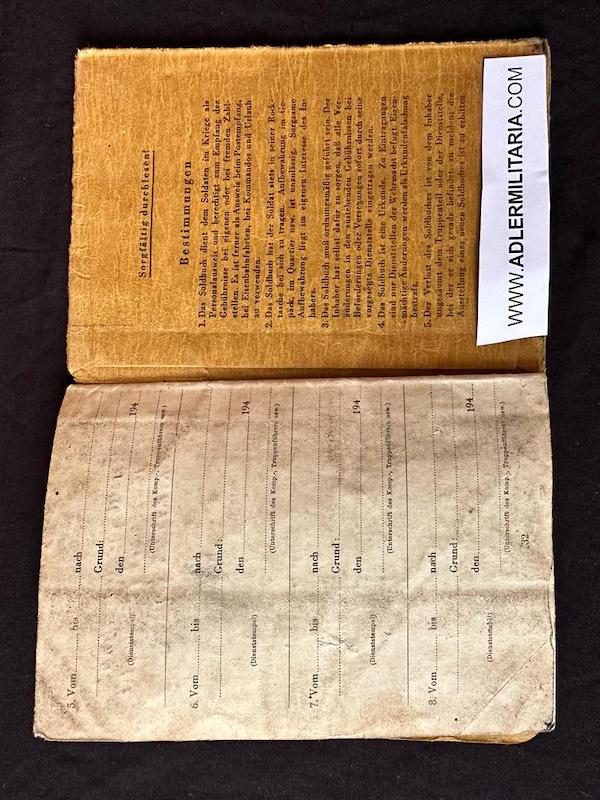 5. Vom ........ bis ........ nach ........
Grund: ........
den ........ 194
(Dienststempel)
(Unterschrift des Komp.-, Truppenführers usw.)
6. Vom ........ bis ........ nach ........
Grund: ........
den ........ 194
(Dienststempel)
(Unterschrift des Komp.-, Truppenführers usw.)
7. Vom ........ bis ........ nach ........
Grund: ........
den ........ 194
(Dienststempel)
(Unterschrift des Komp.-, Truppenführers usw.)
8. Vom ........ bis ........ nach ........
Grund: ........
den ........ 194
(Dienststempel)
(Unterschrift des Komp.-, Truppenführers usw.)
32
Sorgfältig durchlesen!
Bestimmungen
1. Das Soldbuch dient dem Soldaten im Kriege als
Personalausweis und berechtigt zum Empfang der
Gebührnisse bei eigenen oder bei fremden Zahl-
stellen. Es ist ferner als Ausweis beim Postempfang,
bei Eisenbahnfahrten, bei Kommandos und Urlaub
zu verwenden.
2. Das Soldbuch hat der Soldat stets in seiner Rock-
tasche bei sich zu tragen. Aufbewahrung im Ge-
päck, im Quartier usw. ist unzulässig. Sorgsame
Aufbewahrung liegt im eigenen Interesse des In-
habers.
3. Das Soldbuch muß ordnungsmäßig geführt sein. Der
Inhaber hat selbst dafür zu sorgen, daß alle Ver-
änderungen in den zustehenden Gebührnissen bei
Beförderungen oder Versetzungen sofort durch seine
vorgesetzte Dienststelle eingetragen werden.
4. Das Soldbuch ist eine Urkunde. Zu Eintragungen
sind nur Dienststellen der Wehrmacht befugt. Eigen-
mächtige Änderungen werden als Urkundenfälschung
bestraft.
5. Der Verlust des Soldbuches ist von dem Inhaber
ungesäumt dem Truppenteil oder der Dienststelle,
bei der er sich gerade befindet, zu melden; die
Ausstellung eines neuen Soldbuches ist zu erbitten.
WWW.ADLERMILITARIA.COM